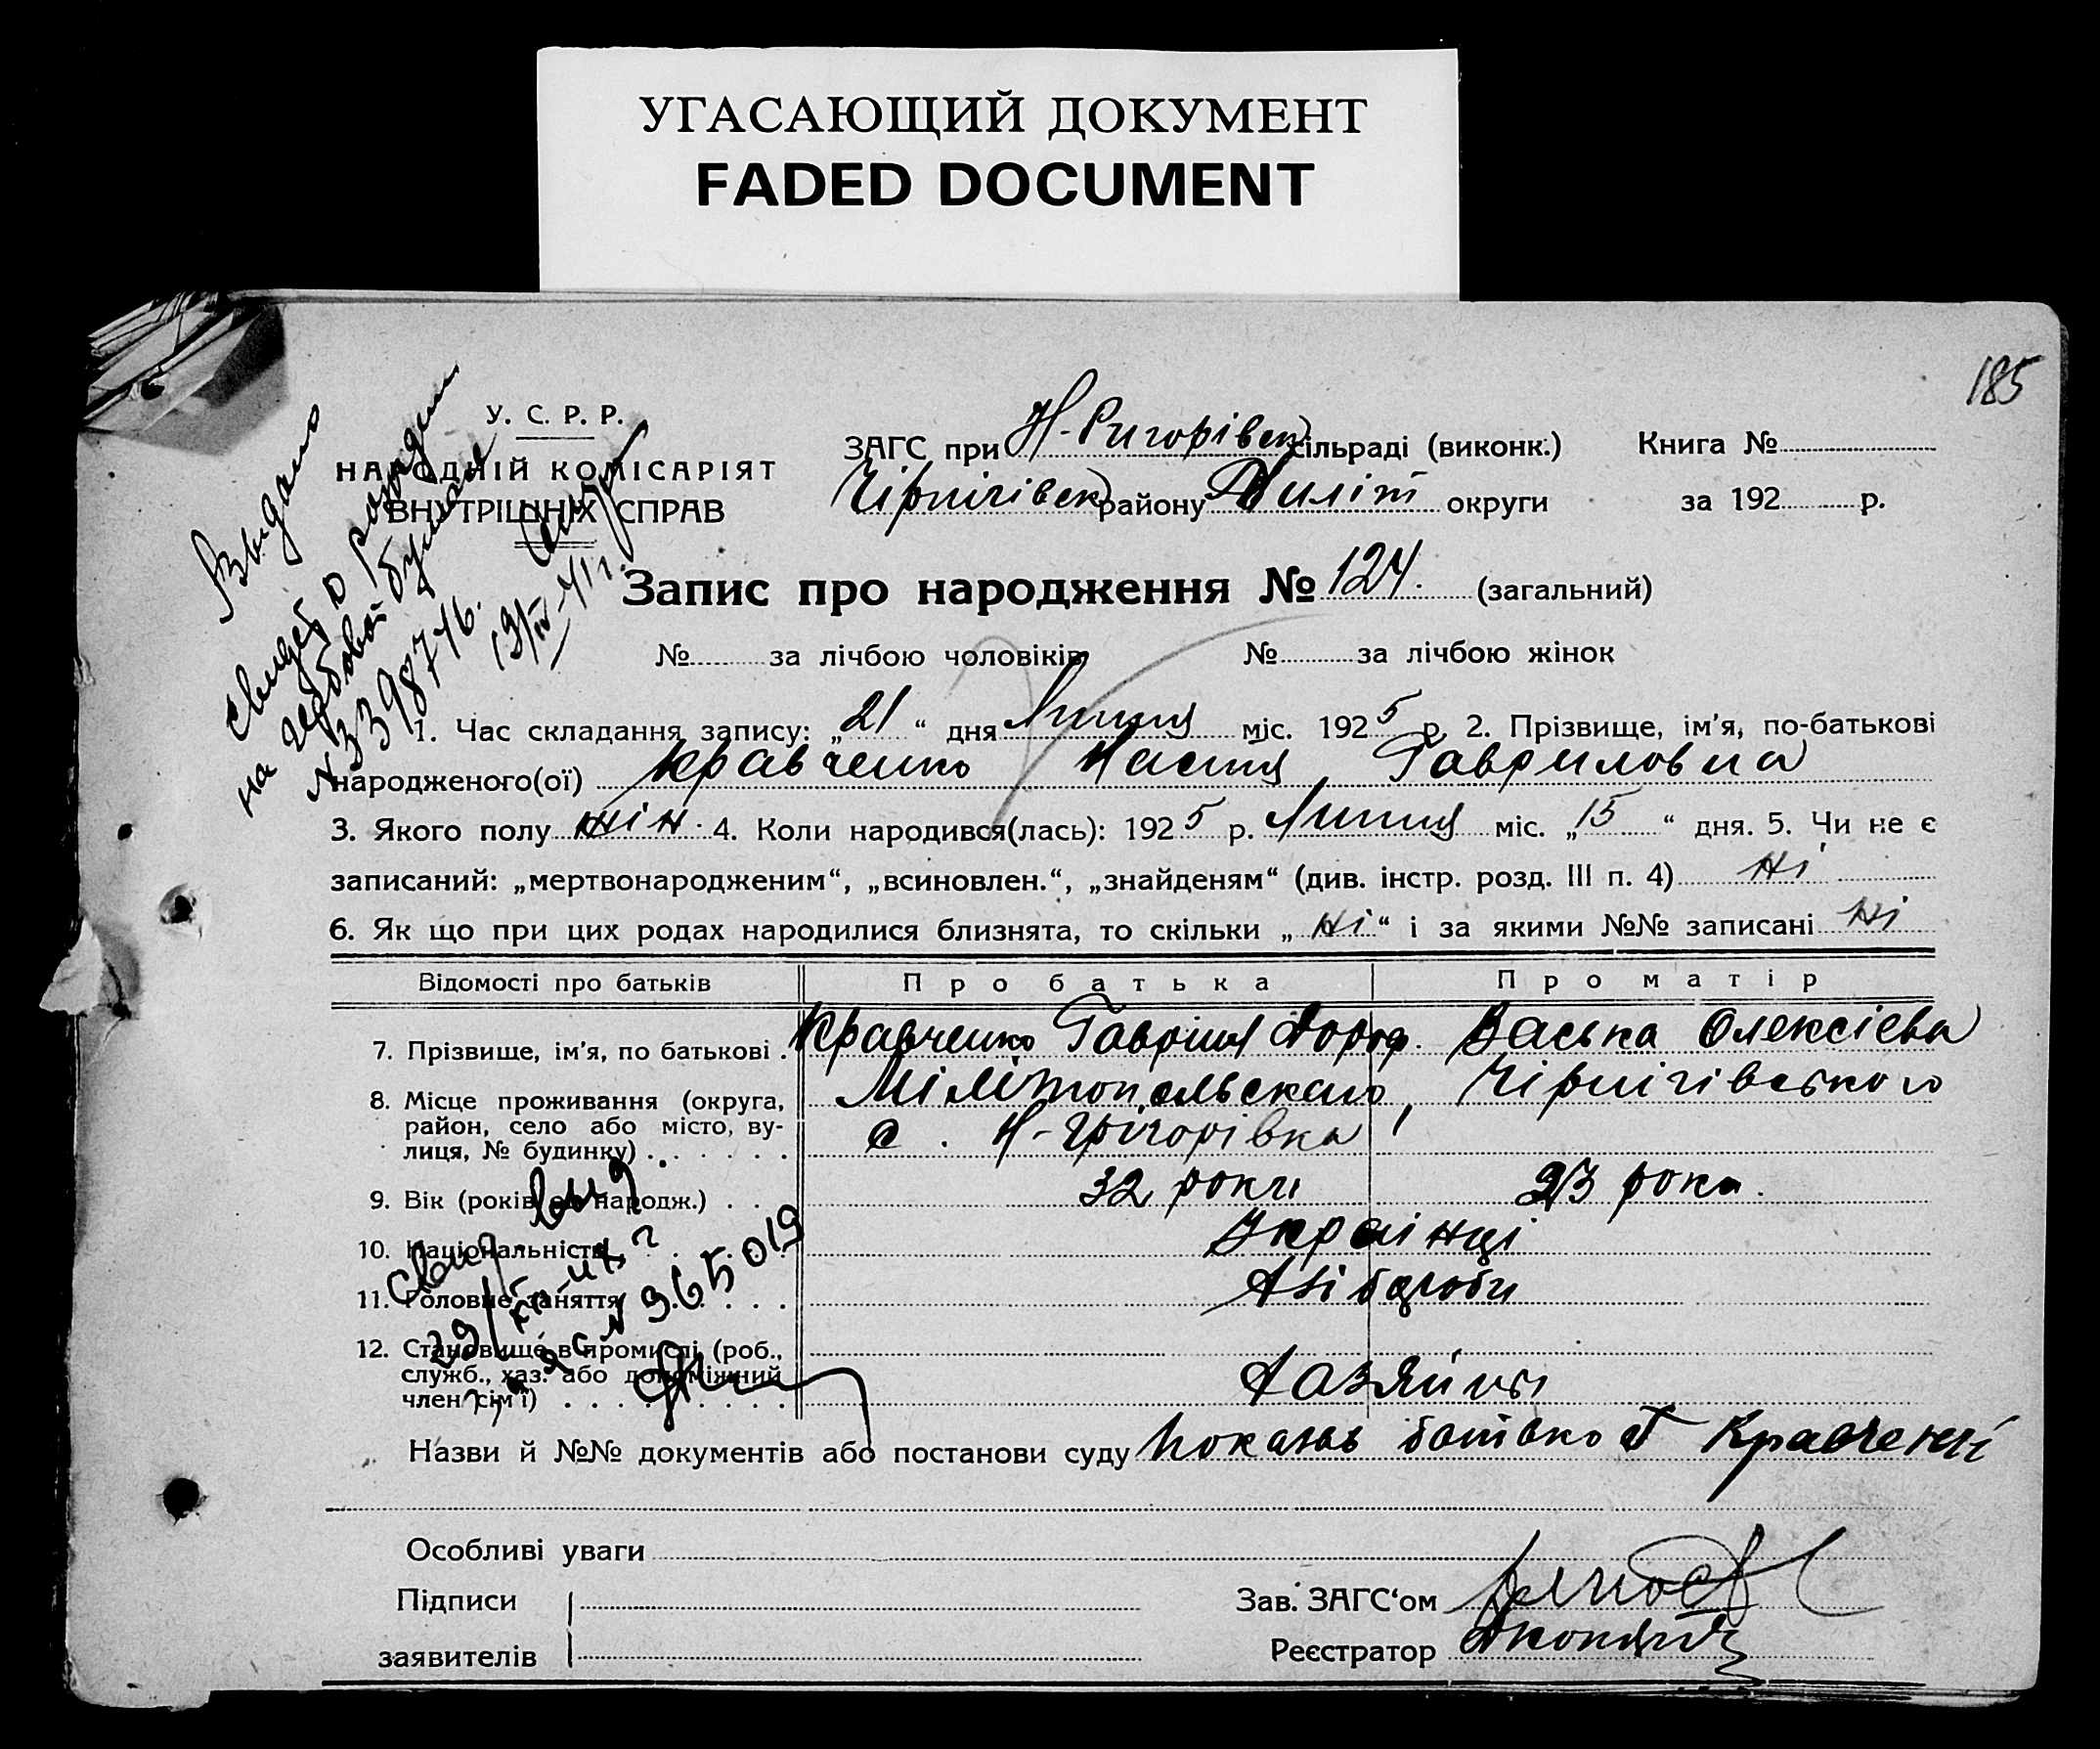 УГАСАЮЩИЙ ДОКУМЕНТ
FADED DOCUMENT
185
У. С. Р. Р.
НАРОДНІЙ КОМІСАРІЯТ
ВНУТРІШНІХ СПРАВ
ЗАГС при Н-Ригорівск сільраді (виконк.) Книга №
Чірнігівск району Миліт округи за 192 р.
Выдано
свидет о рожден
на гербовой бумаге
N 3398746.
13/IV-41 г.
Запис про народження № 124. (загальний)
№ за лічбою чоловіків № за лічбою жінок
1. Час складання запису: „21“ дня Липця міс. 1925 р. 2. Прізвище, ім'я, по-батькові
народженого(ої) Кравченко Настя Гавриловна
3. Якого полу жін. 4. Коли народився(лась): 1925 р. Липця міс. „15“ дня. 5. Чи не є
записаний: „мертвонародженим“, „всиновлен.“, „знайденям“ (див. інстр. розд. III п. 4) Ні
6. Як що при цих родах народилися близнята, то скільки „Ні“ і за якими №№ записані Ні
Відомості про батьків Про батька Про матір
7. Прізвище, ім'я, по батькові . Кравченко Гавриил Дороф. Васька Олексієва
8. Місце проживання (округа, Мілітопольского, Чірнігівського
район, село або місто, ву- с. Н-Григорівка
лиця, № будинку)
9. Вік (років од народж.) 32 роки 23 рока.
10. Національність Украінці
11. Головне заняття Хліборобы
12. Становище в промислі (роб.,
служб., хаз. або допоміжний
член сім'ї) Хазяйны
Свид. выд
29/
N 365019
Назви й №№ документів або постанови суду Показав батько Г Кравченко
Особливі уваги
Підписи Зав. ЗАГС'ом
заявителів Реєстратор